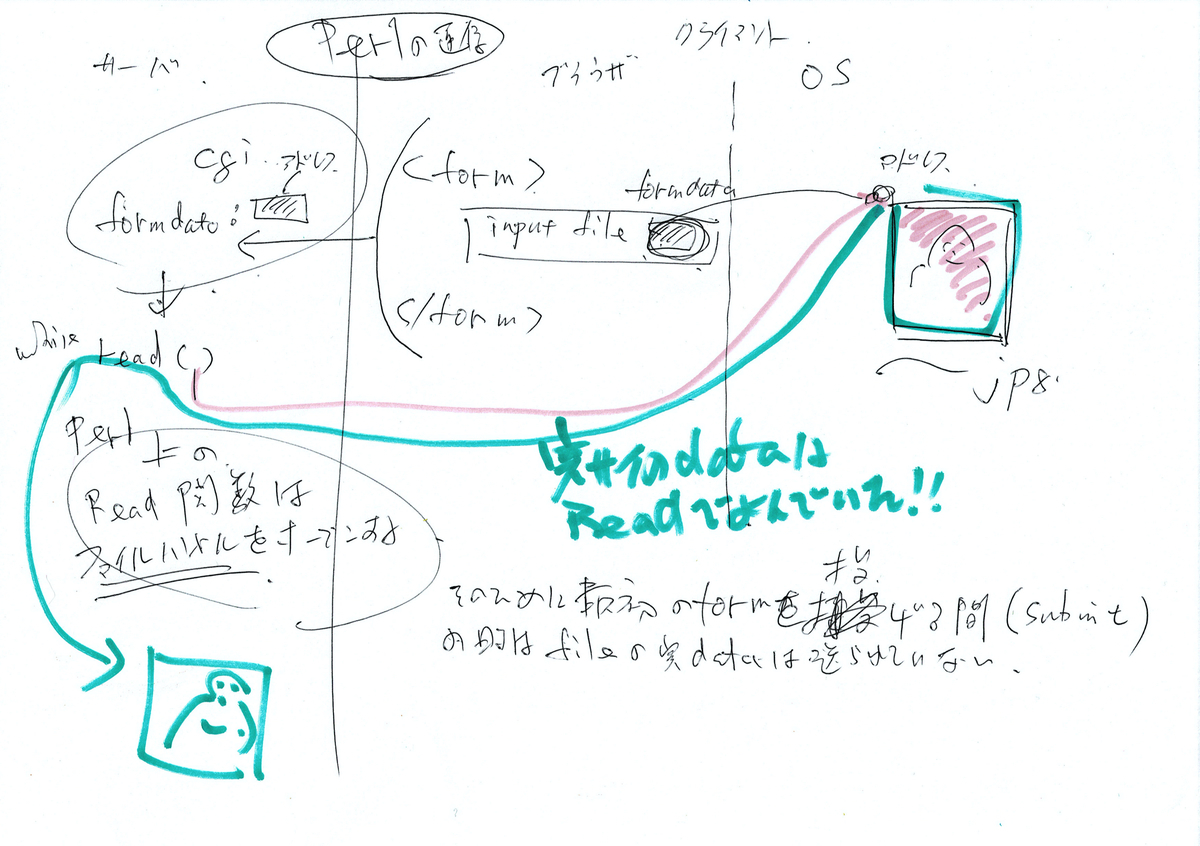 Perlの通信
サーバ
クライアント
ブラウザ
OS
cgi アドレス
formdata:
<form>
formdata
input file
</form>
アドレス
jpg.
while read ( )
Perl上の
Read 関数は
ファイルハンドルを
実際のdataは
Readでよんでいた!!
そのために最初のformを 間 (submit)
の時は fileの実dataは送られていない.